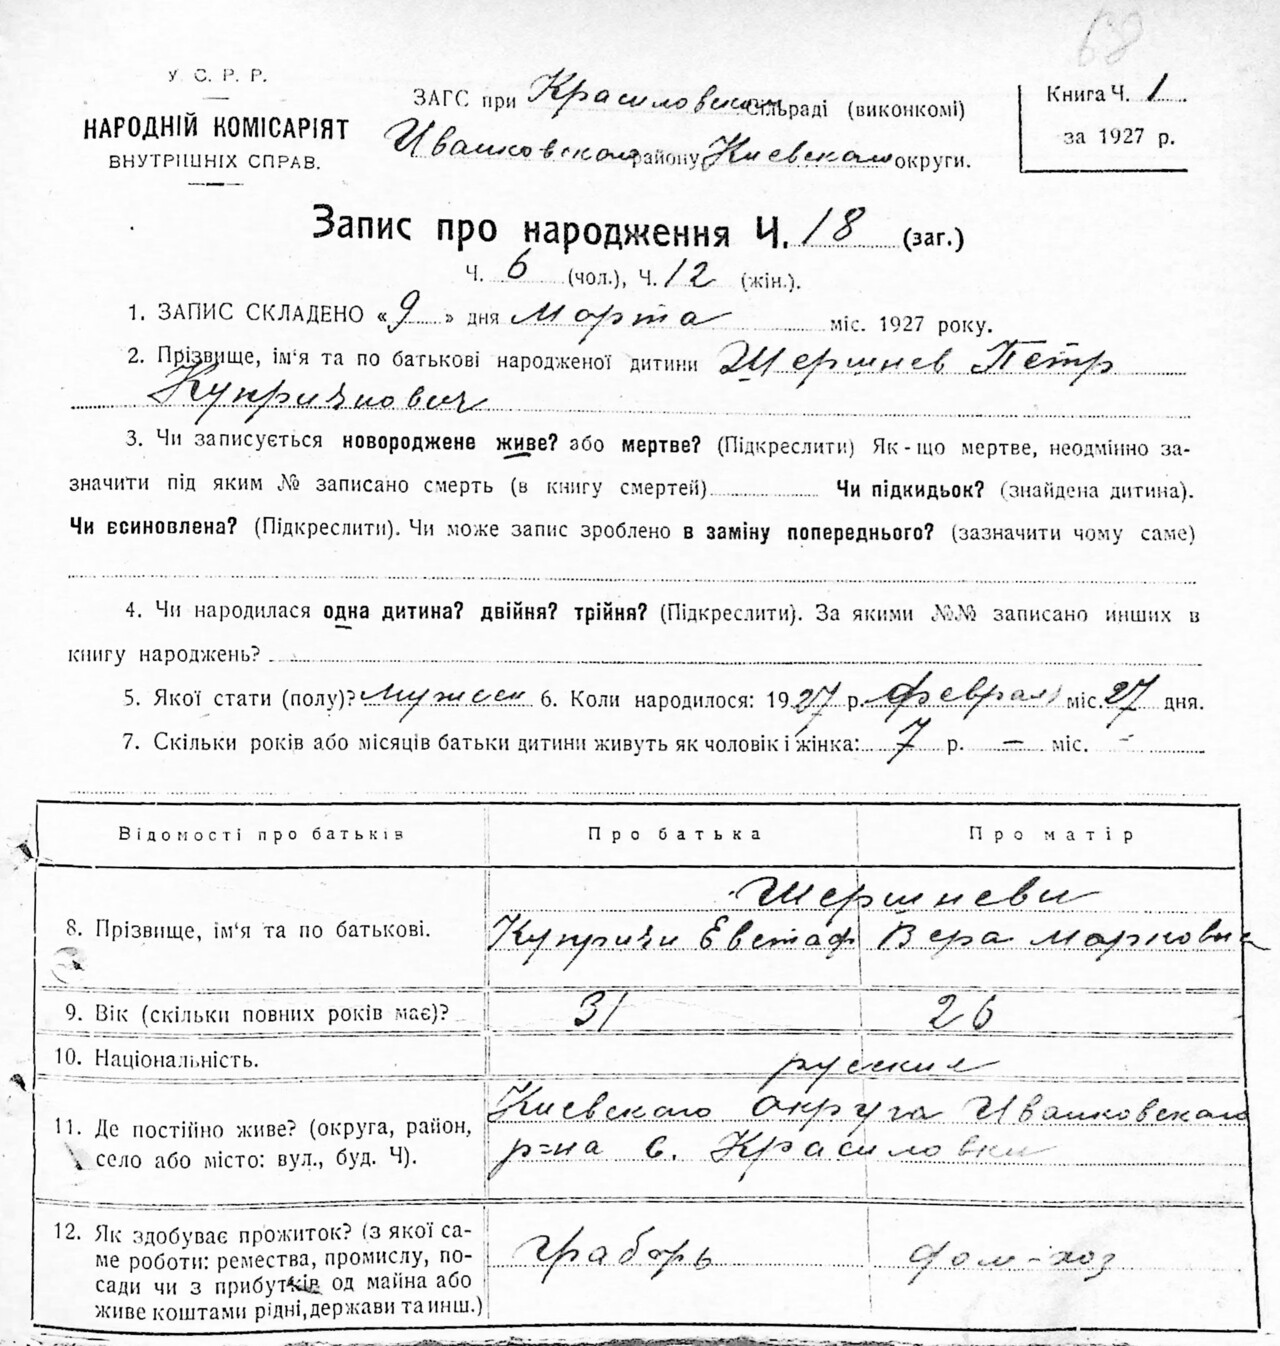 68
У С. Р. Р.
НАРОДНІЙ КОМІСАРІЯТ
ВНУТРІШНІХ СПРАВ.
ЗАГС при Красиловском сільраді (виконкомі)
Иванковском району Киевского округи.
Книга Ч. 1
за 1927 р.
Запис про народження Ч. 18 (заг.)
Ч. 6 (чол.), Ч. 12 (жін.).
1. ЗАПИС СКЛАДЕНО «9» дня Марта міс. 1927 року.
2. Прізвище, ім'я та по батькові народженої дитини Шершнев Петр
Куприянович
3. Чи записується новороджене живе? або мертве? (Підкреслити) Як-що мертве, неодмінно за-
значити під яким № записано смерть (в книгу смертей) Чи підкидьок? (знайдена дитина).
Чи єсиновлена? (Підкреслити). Чи може запис зроблено в заміну попереднього? (зазначити чому саме)
4. Чи народилася одна дитина? двійня? трійня? (Підкреслити). За якими №№ записано инших в
книгу народжень?
5. Якої стати (полу)? мужеск 6. Коли народилося: 1927 р. февраля міс. 27 дня.
7. Скільки років або місяців батьки дитини живуть як чоловік і жінка: 7 р. — міс. -
Відомості про батьків Про батька Про матір
Шершневи
8. Прізвище, ім'я та по батькові. Куприян Евстаф Вера Марковна
9. Вік (скільки повних років має)? 31 26
10. Національність. русския
Киевского округа Иванковского
11. Де постійно живе? (округа, район,
село або місто: вул., буд. Ч). р-на с. Красиловки
12. Як здобуває прожиток? (з якої са-
ме роботи: ремества, промислу, по-
сади чи з прибутків од майна або
живе коштами рідні, держави та инш.)
грабарь дом-хоз